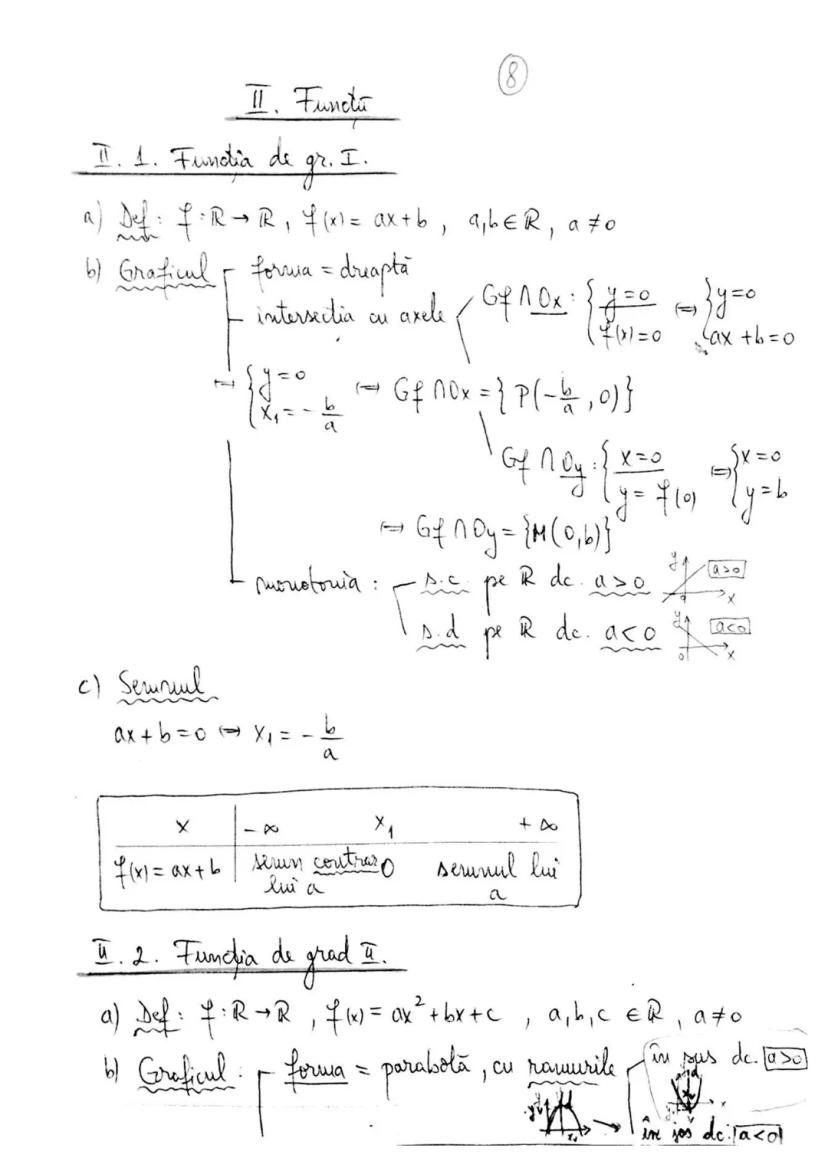 8
II. Funcții
II. 1. Funcția de gr. I.
a) Def: f : ℝ → ℝ, f(x) = ax+b, a,b ∈ ℝ, a ≠ 0
b) Graficul
forma = dreaptă
intersecția cu axele
Gf ∩ Ox : { y=0 f(x)=0 ⇔ { y=0 ax+b=0
⇔ { y=0 x₁ = - b/a ⇔ Gf ∩ Ox = { P(-b/a, 0)}
Gf ∩ Oy : { x=0 y=f(0) ⇔ { x=0 y=b
⇔ Gf ∩ Oy = {M(0,b)}
monotonia : s.c. pe ℝ dc. a>0
y a>0 x
s.d pe ℝ dc. a<0
y a<0 0 x
c) Semnul
ax+b=0 ⇔ x₁ = - b/a
x -∞ x₁ +∞
f(x) = ax+b semn contrar lui a 0 semnul lui a
II. 2. Funcția de grad II.
a) Def: f : ℝ → ℝ, f(x) = ax²+bx+c, a,b,c ∈ ℝ, a ≠ 0
b) Graficul : forma = parabolă, cu ramurile
în sus dc. a>0
în jos dc. a<0